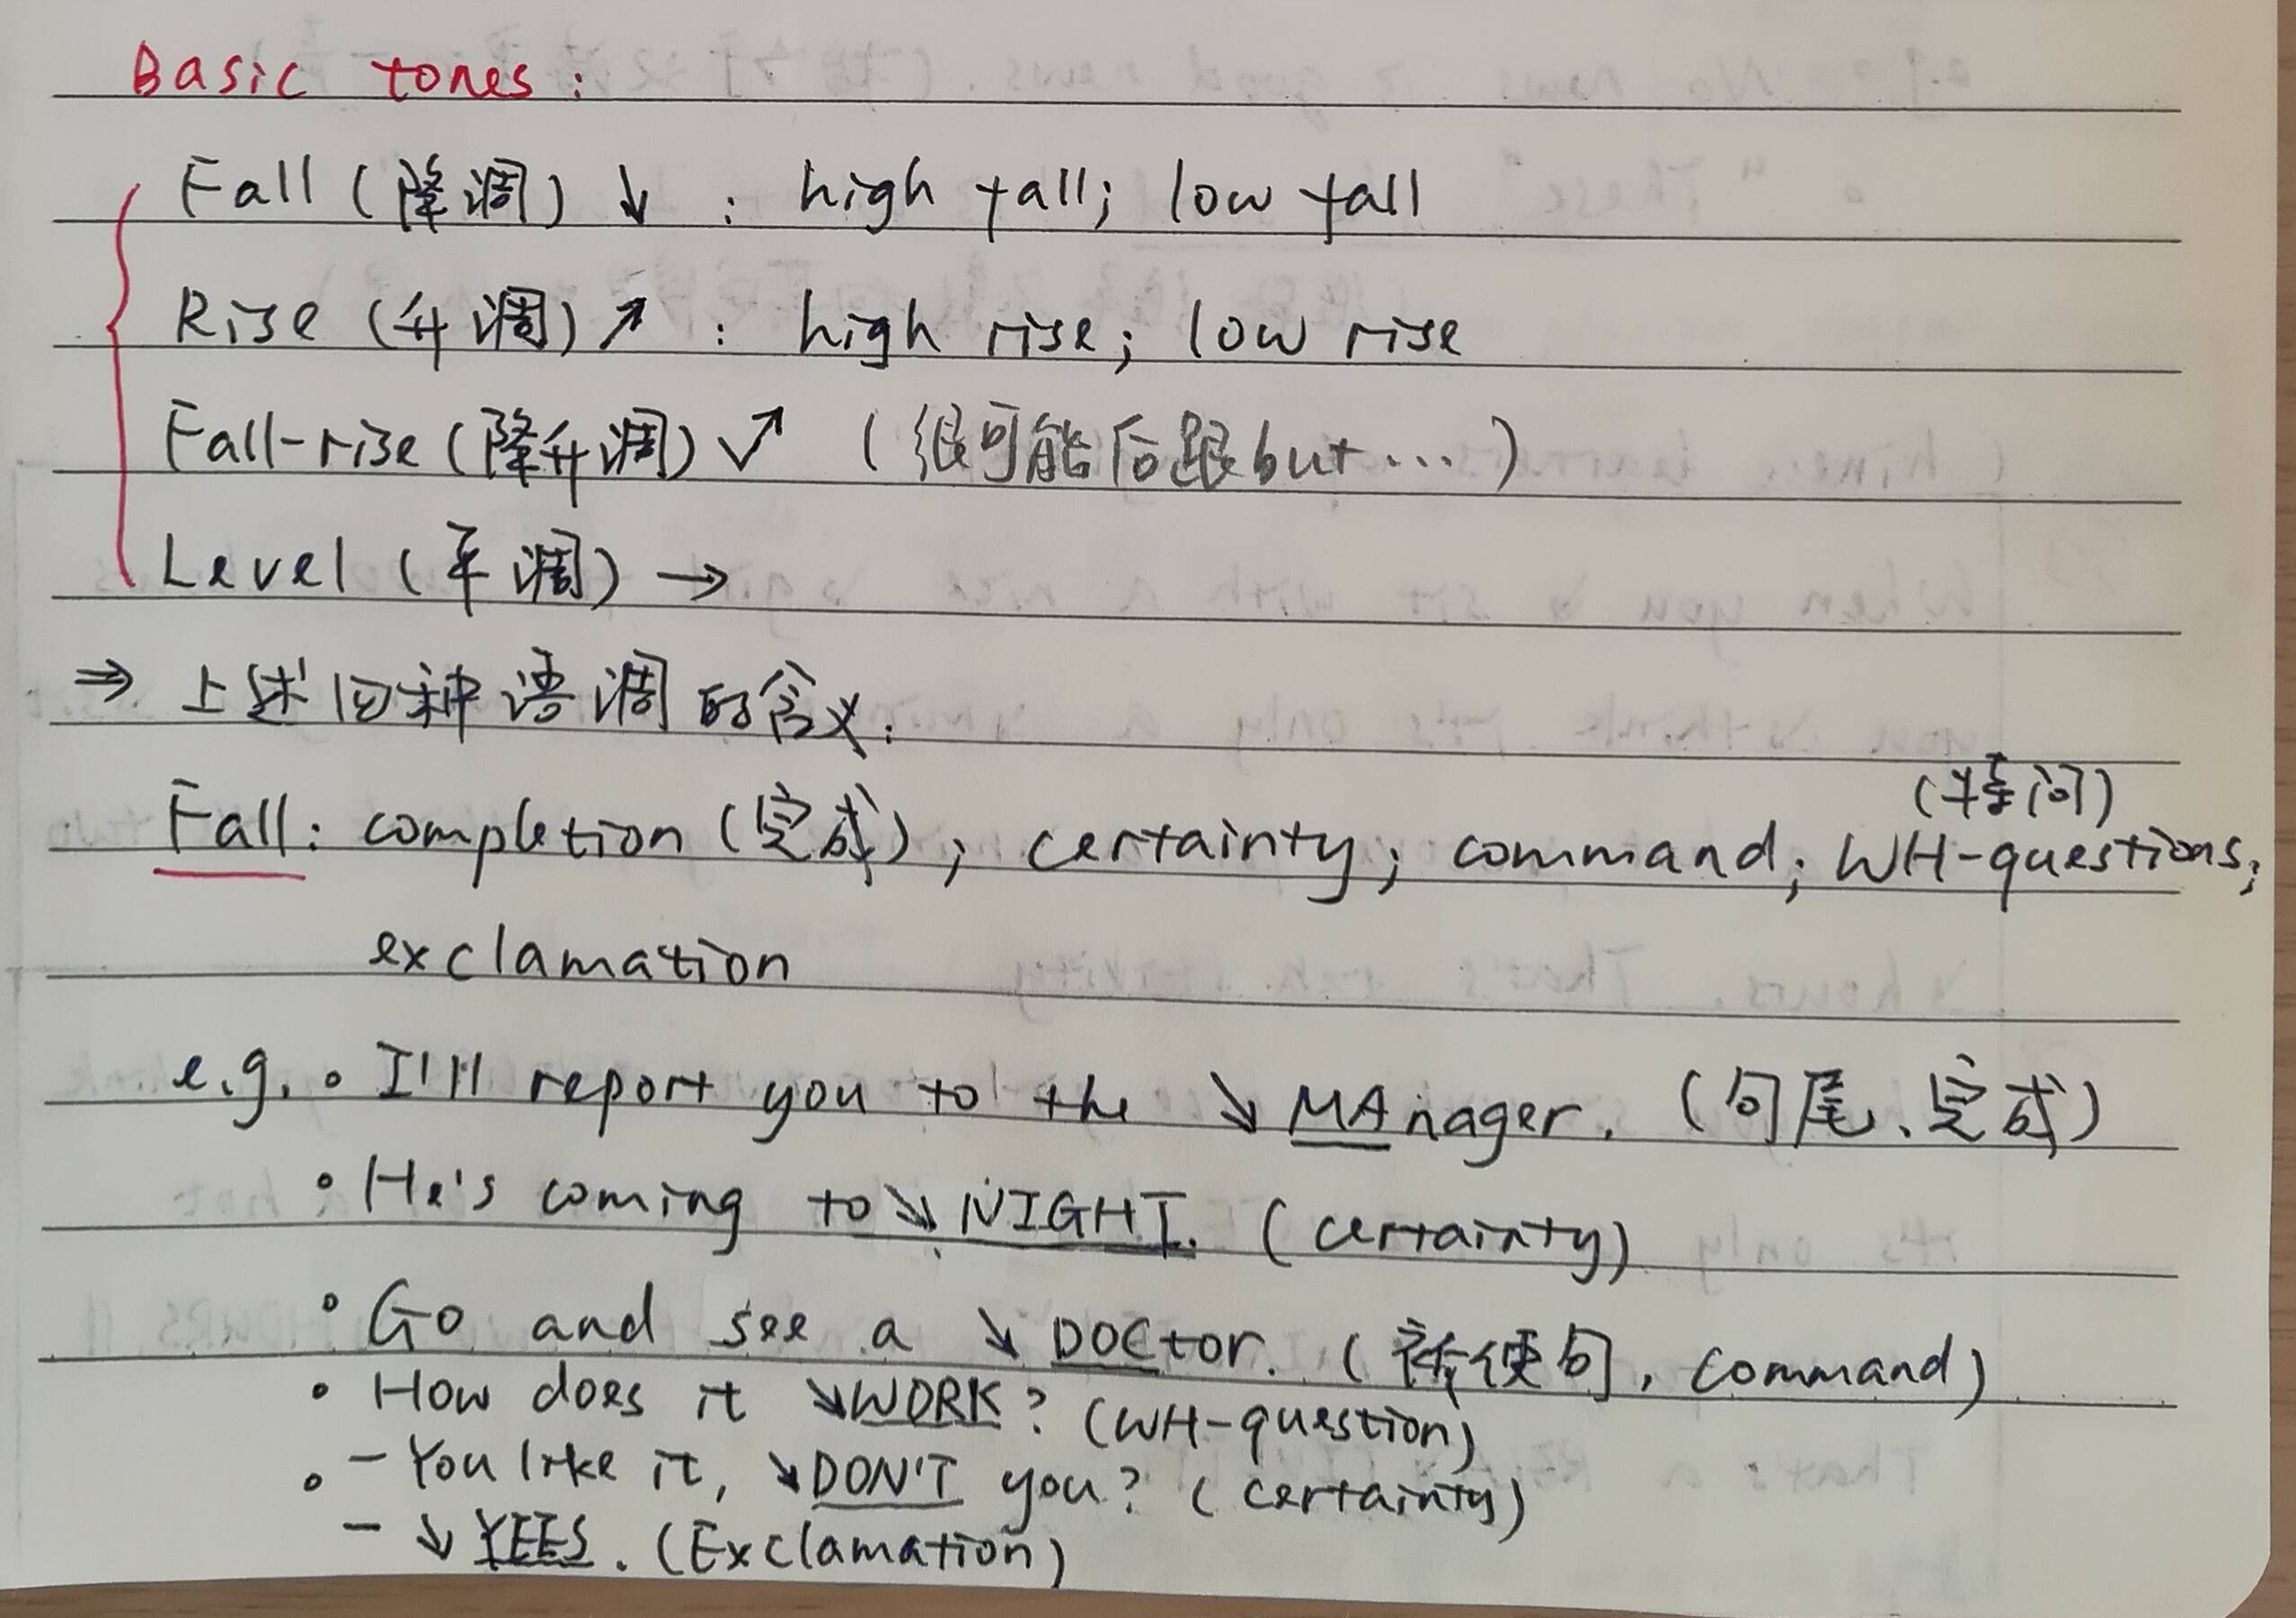 Basic tones:
Fall (降调) ↘ : high fall; low fall
Rise (升调) ↗ : high rise; low rise
Fall-rise (降升调) ↘↗ (很可能后跟but...)
Level (平调) →
⇒ 上述四种语调的含义:
(特问)
Fall: completion (完成); certainty; command; WH-questions;
exclamation
e.g. • I'll report you to the ↘ MAnager. (句尾、完成)
• He's coming to ↘ NIGHT. (certainty)
• Go and see a ↘ DOCtor. (祈使句, command)
• How does it ↘ WORK? (WH-question)
• - You like it, ↘ DON'T you? (certainty)
- ↘ YEES. (Exclamation)